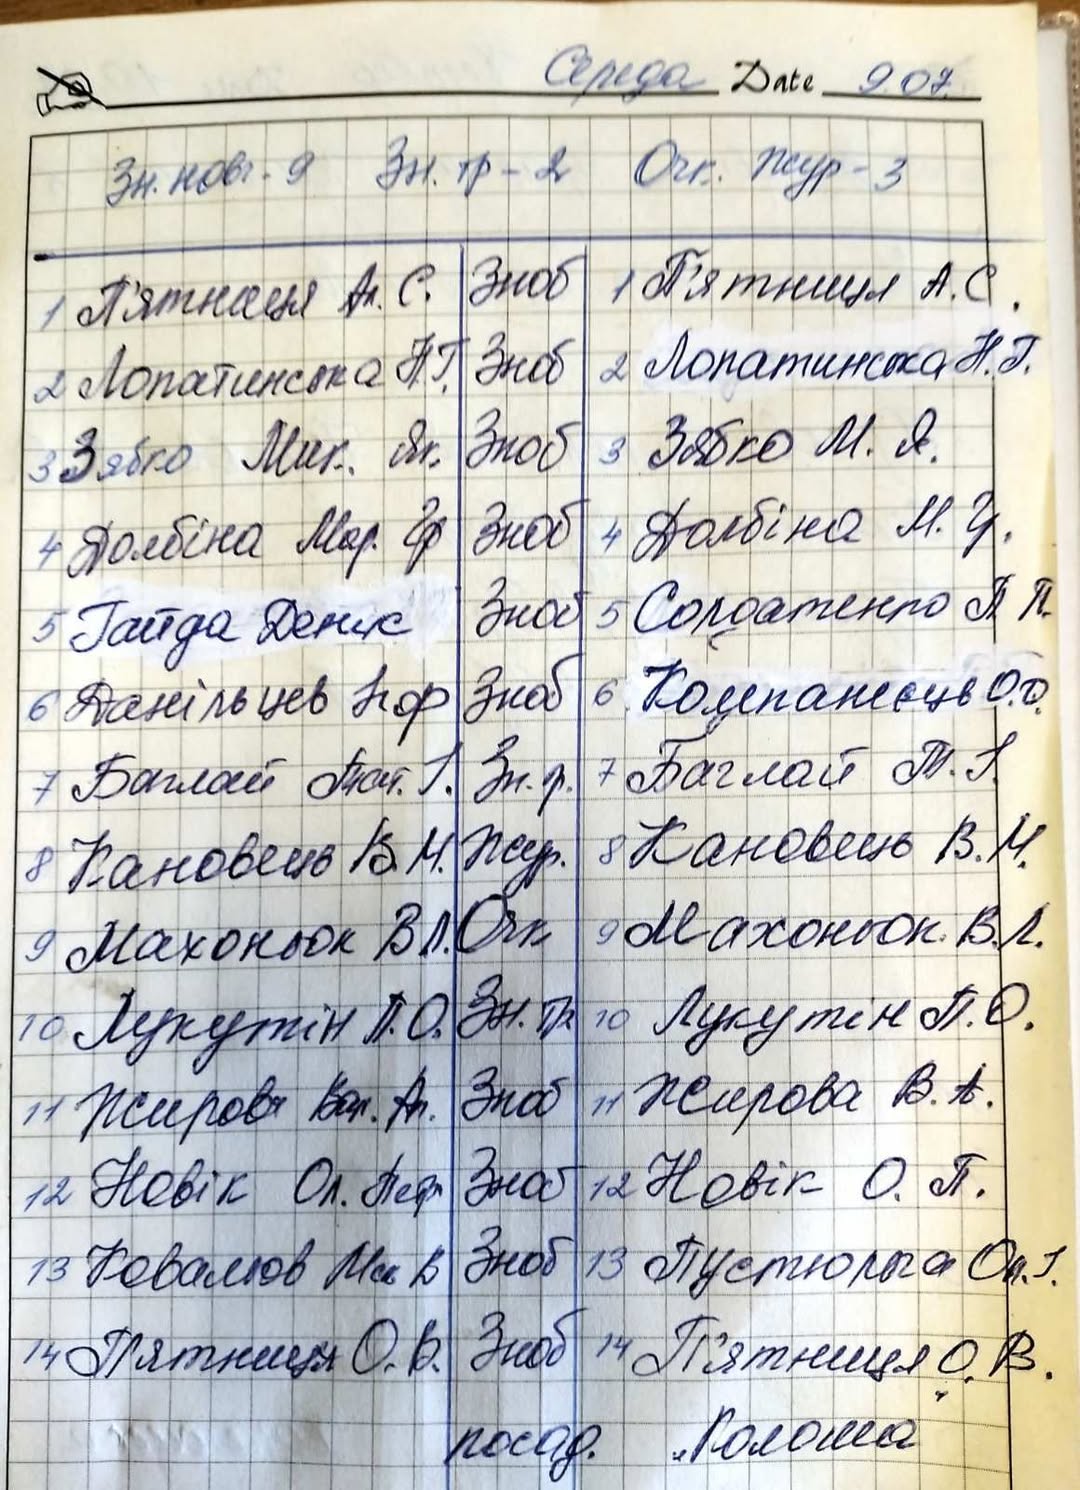 Середа Date 9.07.
Зн. нов - 9 Зн. тр - 2 Очк. Жур - 3
1 П'ятниця Ан. С. Зноб 1 П'ятниця А. С.
2 Лопатинська Н.Г. Зноб 2 Лопатинська Н.Г.
3 Зябко Мик. Як. Зноб 3 Зябко М. Я.
4 Долбіна Мар. Гр Зноб 4 Долбіна М. Гр.
5 Гайда Деніс Зноб 5 Солдатенко П П.
6 Данільцев Зноб 6 Компанієць О.О.
7 Баглай Тат. І. Зн. р. 7 Баглай Т. І.
8 Кановець В. М. Жур. 8 Кановець В. М.
9 Махоньок В Л. Очк 9 Махоньок В. Л.
10 Лукутін П. О. Зн. тр 10 Лукутін П. О.
11 Жирова Вал. Ан. Зноб 11 Жирова В. А.
12 Новік Ол. Петр Зноб 12 Новік О. П.
13 Ковальов В Зноб 13 Пустюльга Ол. І.
14 П'ятниця О. В. Зноб 14 П'ятниця О. В.
посад.